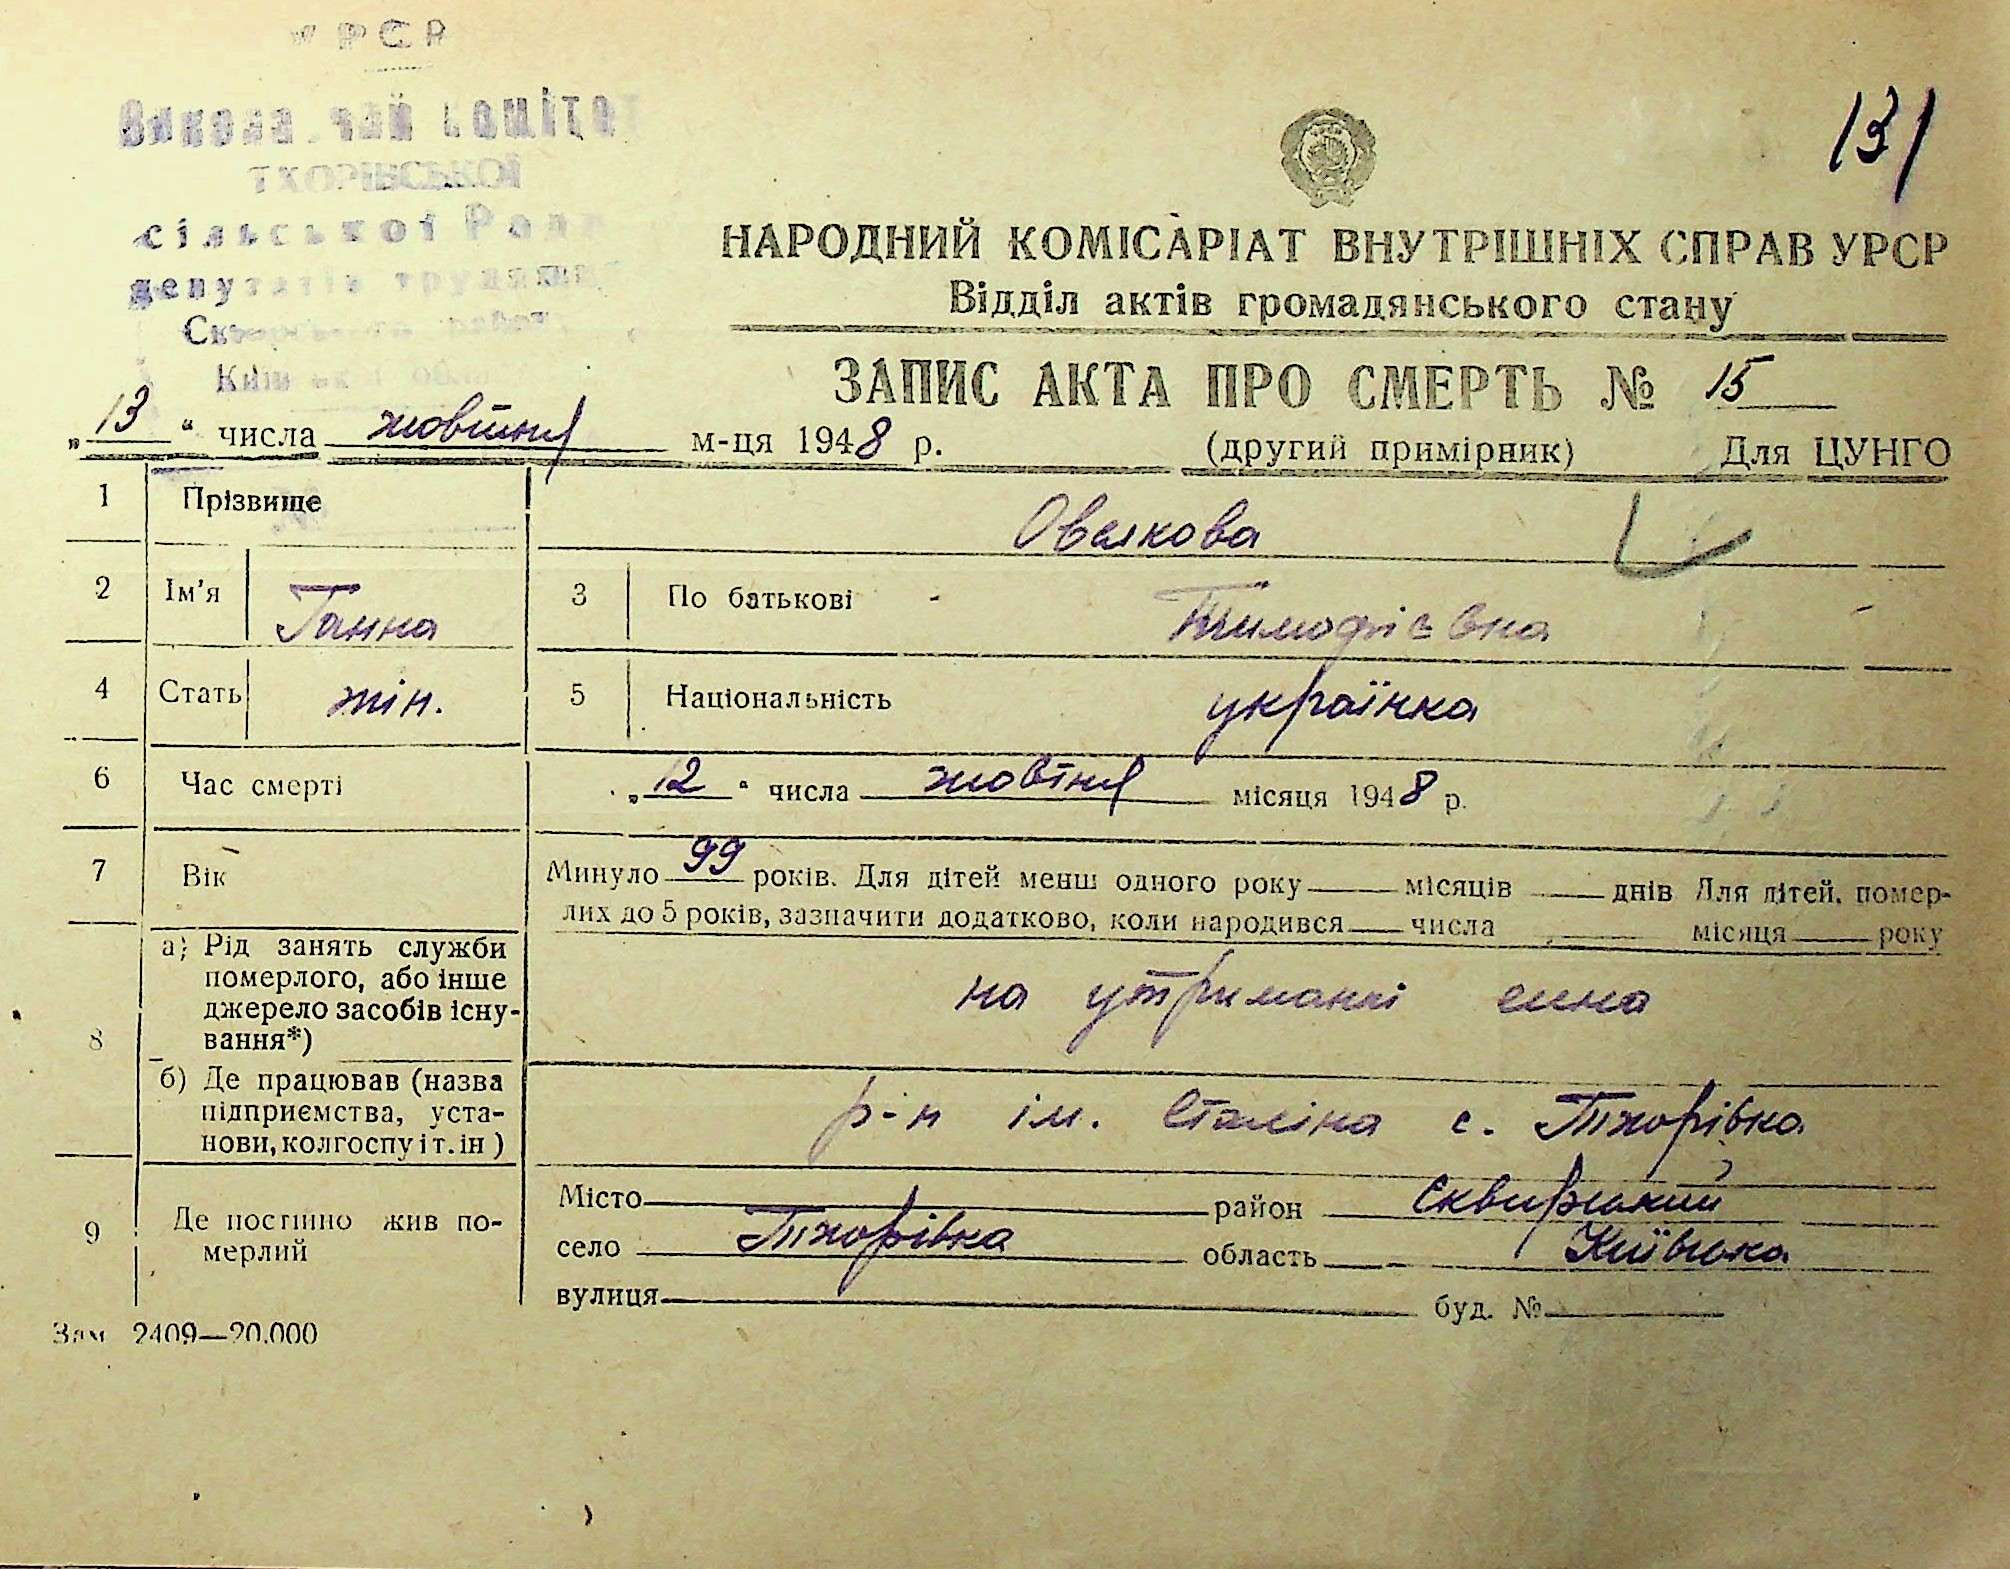 УРСР
Виконавчий комітет
ТХОРІВСЬКОЇ
сільської Ради
депутатів трудящих
131
НАРОДНИЙ КОМІСАРІАТ ВНУТРІШНІХ СПРАВ УРСР
Відділ актів громадянського стану
ЗАПИС АКТА ПРО СМЕРТЬ № 15
„13“ числа жовтня м-ця 1948 р. (другий примірник) Для ЦУНГО
1 Прізвище Овсякова
2 Ім'я Ганна 3 По батькові Тимофієвна
4 Стать жін. 5 Національність українка
6 Час смерті „12“ числа жовтня місяця 1948 р.
7 Вік Минуло 99 років. Для дітей менш одного року місяців днів Для дітей, помер-
лих до 5 років, зазначити додатково, коли народився числа місяця року
8 а) Рід занять служби
померлого, або інше
джерело засобів існу-
вання*) на утриманні сина
б) Де працював (назва
підприємства, уста-
нови, колгоспу і т. ін) р-н ім. Сталіна с. Тхорівка
9 Де постійно жив по-
мерлий
Місто район Сквирський
село Тхорівка область Київська
вулиця буд. №
Зам 2409—20.000